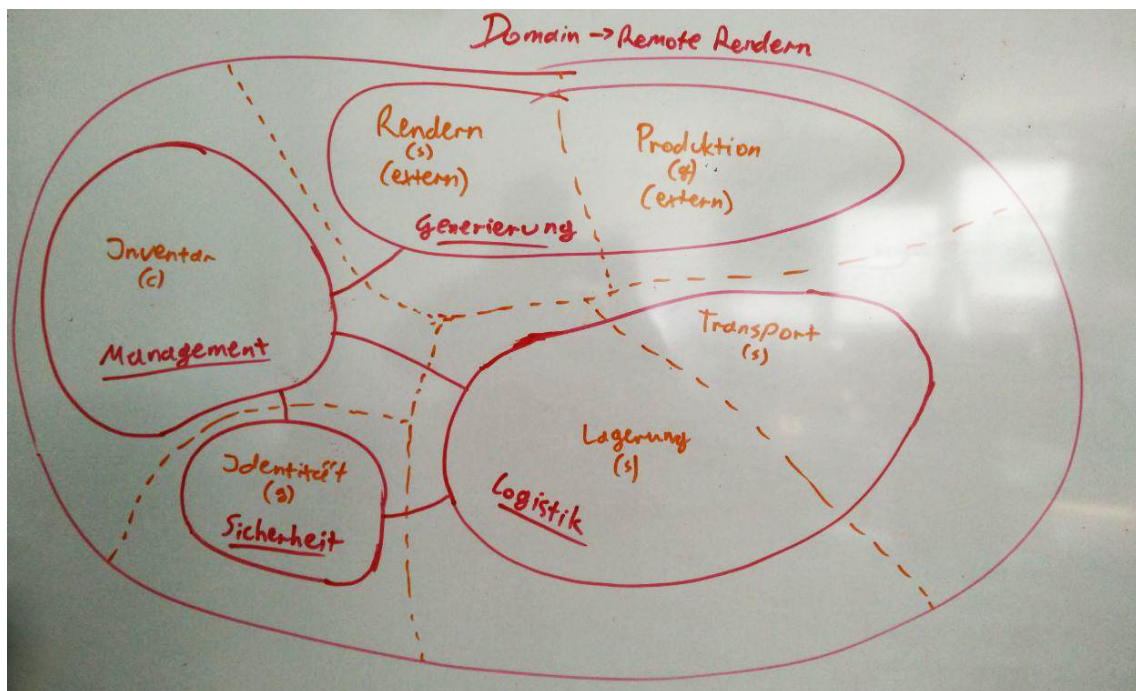 Domain → Remote Rendern
Rendern
(s)
(extern)
Produktion
(g)
(extern)
Generierung
Inventar
(c)
Management
Transport
(s)
Lagerung
(s)
Logistik
Identität
(g)
Sicherheit